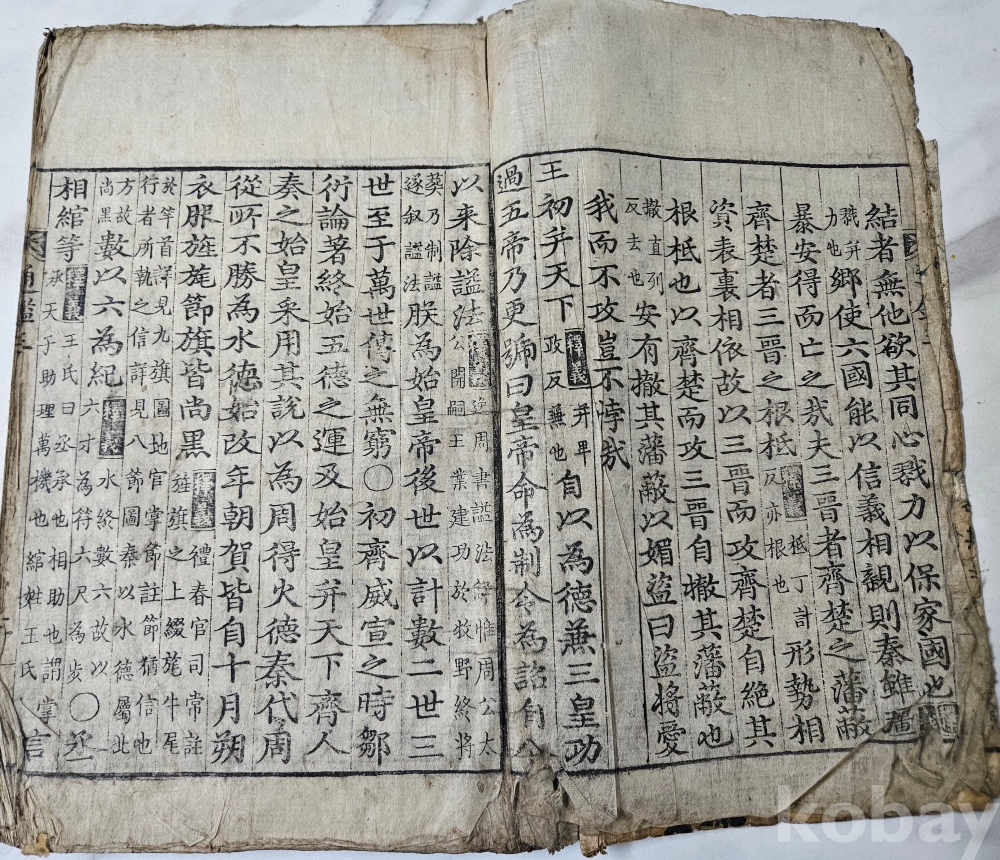 結者無他欲其同心戮力以保家國也
戮并
力也
鄉使六國能以信義相親則秦雖彊
暴安得而亡之哉夫三晋者齊楚之藩蔽
齊楚者三晋之根柢
釋義
柢丁計
反亦根也
形勢相
資表裏相依故以三晋而攻齊楚自絕其
根柢也以齊楚而攻三晋自撤其藩蔽也
撤直列
反去也
安有撤其藩蔽以媚盜曰盜將愛
我而不攻豈不悖哉
王初并天下
釋義
并卑
政反
兼也
自以為德兼三皇功
過五帝乃更號曰皇帝命為制令為詔自今
以来除謚法
周書謚法解惟周公太
公開嗣王業建功於牧野終將
葬乃制謚
遂叙謚法
朕為始皇帝後世以計數二世三
世至于萬世傳之無窮〇初齊威宣之時鄒
衍論著終始五德之運及始皇并天下齊人
奏之始皇采用其說以為周得火德秦代周
從所不勝為水德始改年朝賀皆自十月朔
衣服旌旄節旗皆尚黑
釋義
禮春官司常註
旌旗之上綴旄牛尾
於竿首詳見九旗圖地官掌節註節猶信也
行者所執之信詳見八節圖秦以水德屬北
方故
尚黑
數以六為紀
釋義
水終數六故以
六寸為符六尺為步
〇丞
相綰等
釋義
王氏曰丞承也相助也謂掌
承天子助理萬機也綰姓王氏
言
通鑑三
kobay